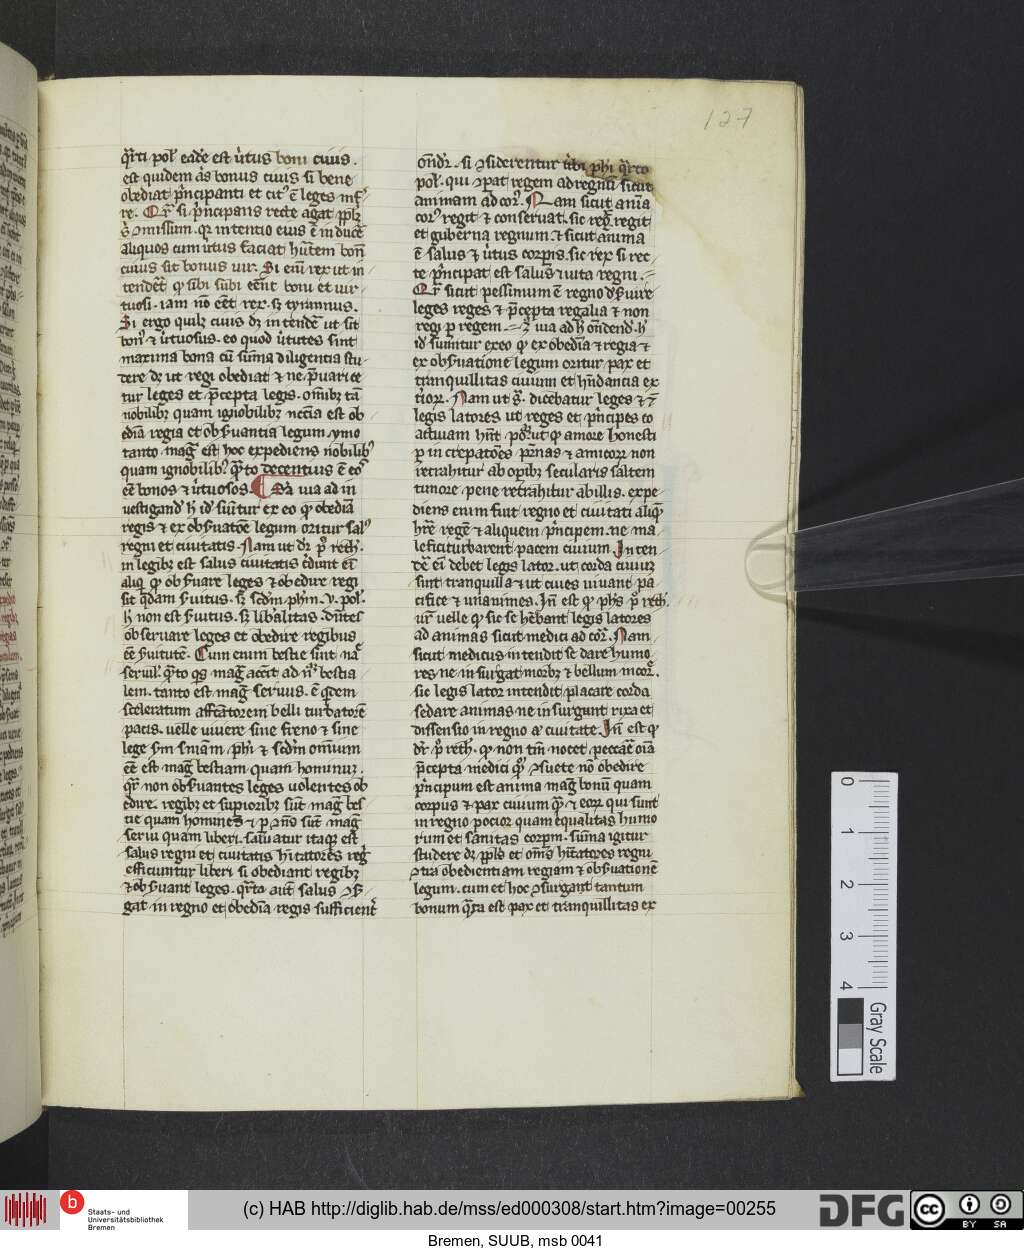 127
q̄rti pol' eadē est v̓tus boni cuius.
est quidem āS bonus ciuis si bene
obediat p̓ncipanti et cit' ē leges inf'
re. Qr̄ si p̓ncipans recte agat
omissum. qꝫ intentio eius ē inducē
aliquos cum v̓tus faciat hn̄tem bonū
ciuis sit bonus uir. Si enī rex ut in
tendēt qꝫ sibi subi eēnt boni et uir
tuosi. iam nō eēt rex. sꝫ tyrannus.
Si ergo quilꝫ ciuis dꝫ intendē ut sit
bon' ⁊ v̓tuosus. eo quod v̓tutes sint
maxima bona cū sūma diligentia stu
dere dꝫ ut regi obediat ⁊ ne p̄uarice
tur leges et p̄cepta legis. omībꝫ tā
nobilibꝫ quam ignobilibꝫ necīa est ob
edīa regia et obẜuantia legum. ymo
tanto maḡ est hoc expediens nobilib'
quam ignobilib'. q̄nto decentius ē eos
eē bonos ⁊ v̓tuosos. Sc̄da uia ad in
uestigand' h̓ id' sumit̄ur ex eo qꝫ obedīa
regis ⁊ ex obẜuatōe legum oritur sal'
regni et ciuitatis. Nam ut dr̄ p̓ reth.
in legibꝫ est salus ciuitatis
aliq̓ qꝫ obẜuare leges ⁊ obedire regi
sit q̄dam ẜuitus. sꝫ scdm phm. v. pol'.
h̓ non est ẜuitus. sꝫ lib̓alitas.
obseruare leges et obedire regibus
eē ẜuitutē. Cum enim bestie sint nā
seruil'. q̄nto q̓s maḡ accēt ad n̄ bestia
lem. tanto est maḡ seruus. ē q̓dem
sceleratum affcātorem belli turbatorē
pacis. uelle viuere sine freno ⁊ sine
lege s̄m sn̄iam phi ⁊ scdm omnium
eē est maḡ bestiam quam hominuꝫ.
qr̄ non obẜuantes leges uolentes ob
edire. regibꝫ et supioribꝫ sūt maḡ bes
tie quam homines
serui quam liberi. saluatur itaqꝫ est
salus regni et ciuitatis h̄itatores reg̓
efficiuntur liberi si obediant regibꝫ
⁊ obẜuant leges. q̄rto aut̄ salus ↄsur
gat in regno et obedīa regis sufficient̓
oñdr̄. si ↄsiderentur v̓bi phi q̄rto
pol'. qui ↄparat regem ad regnū sicut
animam ad cor'. Nam sicut anīa
cor' regit ⁊ conseruat. sic rex regit
et gubernat regnum. ⁊ sicut anima
ē salus ⁊ v̓tus corpis. sic rex si rec
te p̓ncipat est salus ⁊ uita regni.
Qr̄ sicut pessimum ē regno deẜuire
leges reges ⁊ p̄cepta regalia ⁊ non
regi p regem. uia ad h̓ oñdend' h̓
id' sumitur ex eo qꝫ ex obedīa ⁊ regia ⁊
ex obẜuatione legum oritur pax et
tranquillitas ciuium et habundancia ex
t̓ior. Nam ut ẜ. dicebatur leges ⁊
legis latores ut reges et p̓ncipes co
actiuam hn̄t ut qꝫ amore honesti
p increpatōes p̄nas ⁊ amicorꝫ non
retrahitur ab opibꝫ secularis saltem
timore pene retrahitur ab illis. expe
diens enim fuit regno et ciuitati aliq̓
hr̄e regē ⁊ aliquem p̓ncipem. ne ma
lefici turbarent pacem ciuium. Inten
dē ei debet legis lator. ut corda ciuiuꝫ
sint tranquilla ⁊ ut ciues uiuant pa
cifice ⁊ vnanimes. In̄ est qꝫ phs p̓ reth.
vr̄ velle qꝫ sic se hēbant legis latores
ad animas sicut medici ad cor'. Nam
sicut medicus intendit sedare humo
res ne insurgat morbꝫ ⁊ bellum in cor̄.
sic legis lator intendit placare corda
sedare animas ne insurgunt rixa et
dissensio in regno ac ciuitate. In̄ est qꝫ
dr̄ p̓ reth. qꝫ non tm̄ nocet peccāe ↄ̄
p̄cepta medici q̄m ↄsuete nō obedire
p̓ncipum est anima maḡ bonū quam
corpus ⁊ pax ciuium q̄ ⁊ eorꝫ qui sunt
in regno pocior quam equalitas humo
rum et sanitas corpm. sūma igitur
studere dꝫ ppls et om̄s h̄itatores regni
ↄtra obedientiam regiam ⁊ obẜuationē
legum. cum et hoc ↄsurgant tantum
bonum q̄nta est pax et tranquillitas ex
0
1
2
3
4
Gray Scale
Staats- und
Universitätsbibliothek
Bremen
(c) HAB http://diglib.hab.de/mss/ed000308/start.htm?image=00255
DFG
cc
BY SA
Bremen, SUUB, msb 0041